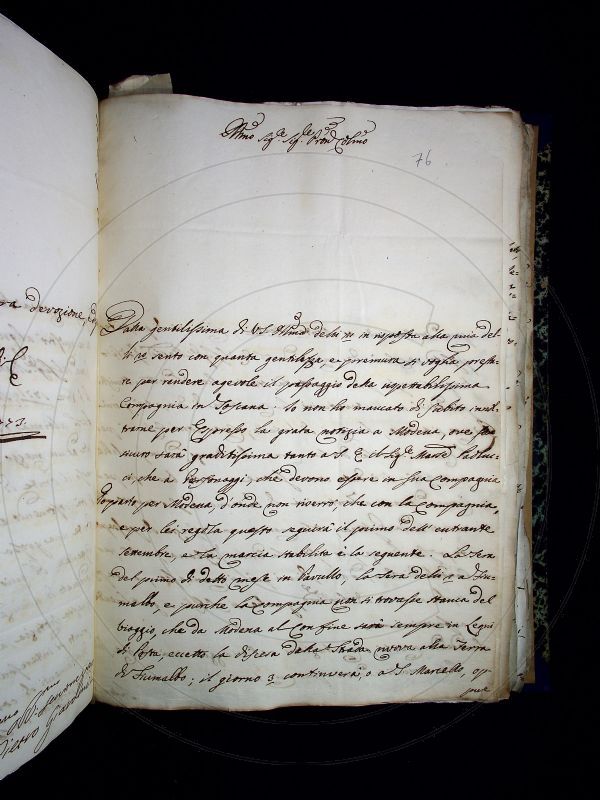 Illmo Sig.e Sig.e Pron Colmo
76
Dalla gentilissima di V.S. Illma delli 10 in risposta alla mia del
li sento con quanta gentilezza, e premura si voglia presta-
re per rendere agevole il passaggio della rispettabilissima
Compagnia in Toscana. Io non ho mancato di subito inol-
trarne per Espresso la grata notizia a Modena, ove
sicuro sarà graditissima tanto a S. E. il Sigre Marse Paoluc-
ci, che a Personaggi, che devono essere in sua Compagnia
parto per Modena d'onde non riverrò, che con la Compagnia,
e per lei regola questo seguirà il primo dell'entrante
settembre, e la marcia stabilita è la seguente. La sera
del primo di detto mese in Pavullo, la sera delli 2 a Fiu-
malbo, e purche la Compagnia non si trovasse stanca del
viaggio, che da Modena al Confine sarà sempre in Legni
di Posta, eccetto la discesa dalla Strada nuova alla Terra
di Fiumalbo; il giorno 3 continuerà, o a S. Marcello, op
pure
ra devozione, ed
73.